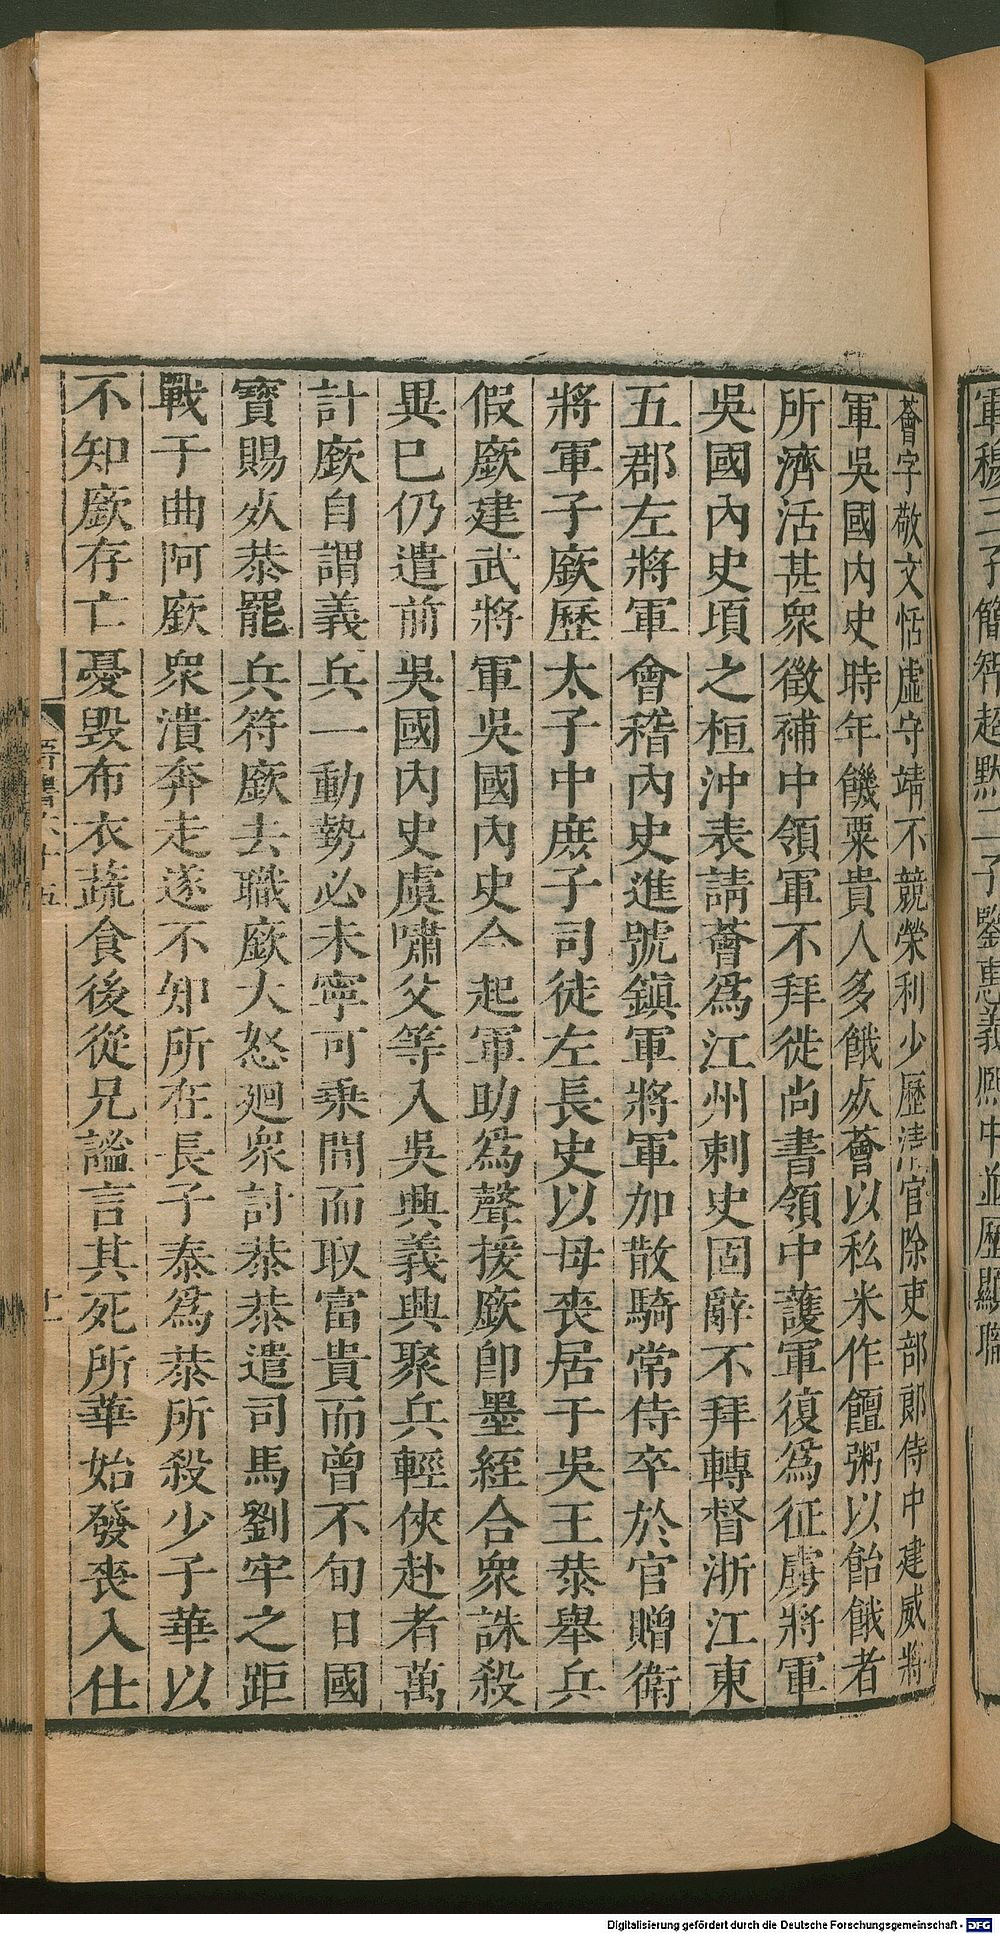 軍穆三子簡智超默二子鑒惠義熈中並歷顯職
薈字敬文恬虚守靖不競榮利少歷淸官除吏部郎侍中建威將
軍吳國內史時年饑粟貴人多餓死薈以私米作饘粥以飴餓者
所濟活甚衆徵補中領軍不拜徙尚書領中護軍復爲征虜將軍
吳國內史頃之桓沖表請薈爲江州刺史固辭不拜轉督浙江東
五郡左將軍會稽內史進號鎮軍將軍加散騎常侍卒於官贈衛
將軍子廞歷太子中庶子司徒左長史以母喪居于吳王恭舉兵
假廞建武將軍吳國內史令起軍助爲聲援廞卽墨絰合衆誅殺
異已仍遣前吳國內史虞嘯父等入吳興義興聚兵輕俠赴者萬
計廞自謂義兵一動勢必未寧可乗間而取富貴而曾不旬日國
寳賜死恭罷兵符廞去職廞大怒廻衆討恭恭遣司馬劉牢之距
戰于曲阿廞衆潰奔走遂不知所在長子泰爲恭所殺少子華以
不知廞存亡憂毀布衣蔬食後從兄謐言其死所華始發喪入仕
晉書六十五
十一
Digitalisierung gefördert durch die Deutsche Forschungsgemeinschaft - DFG